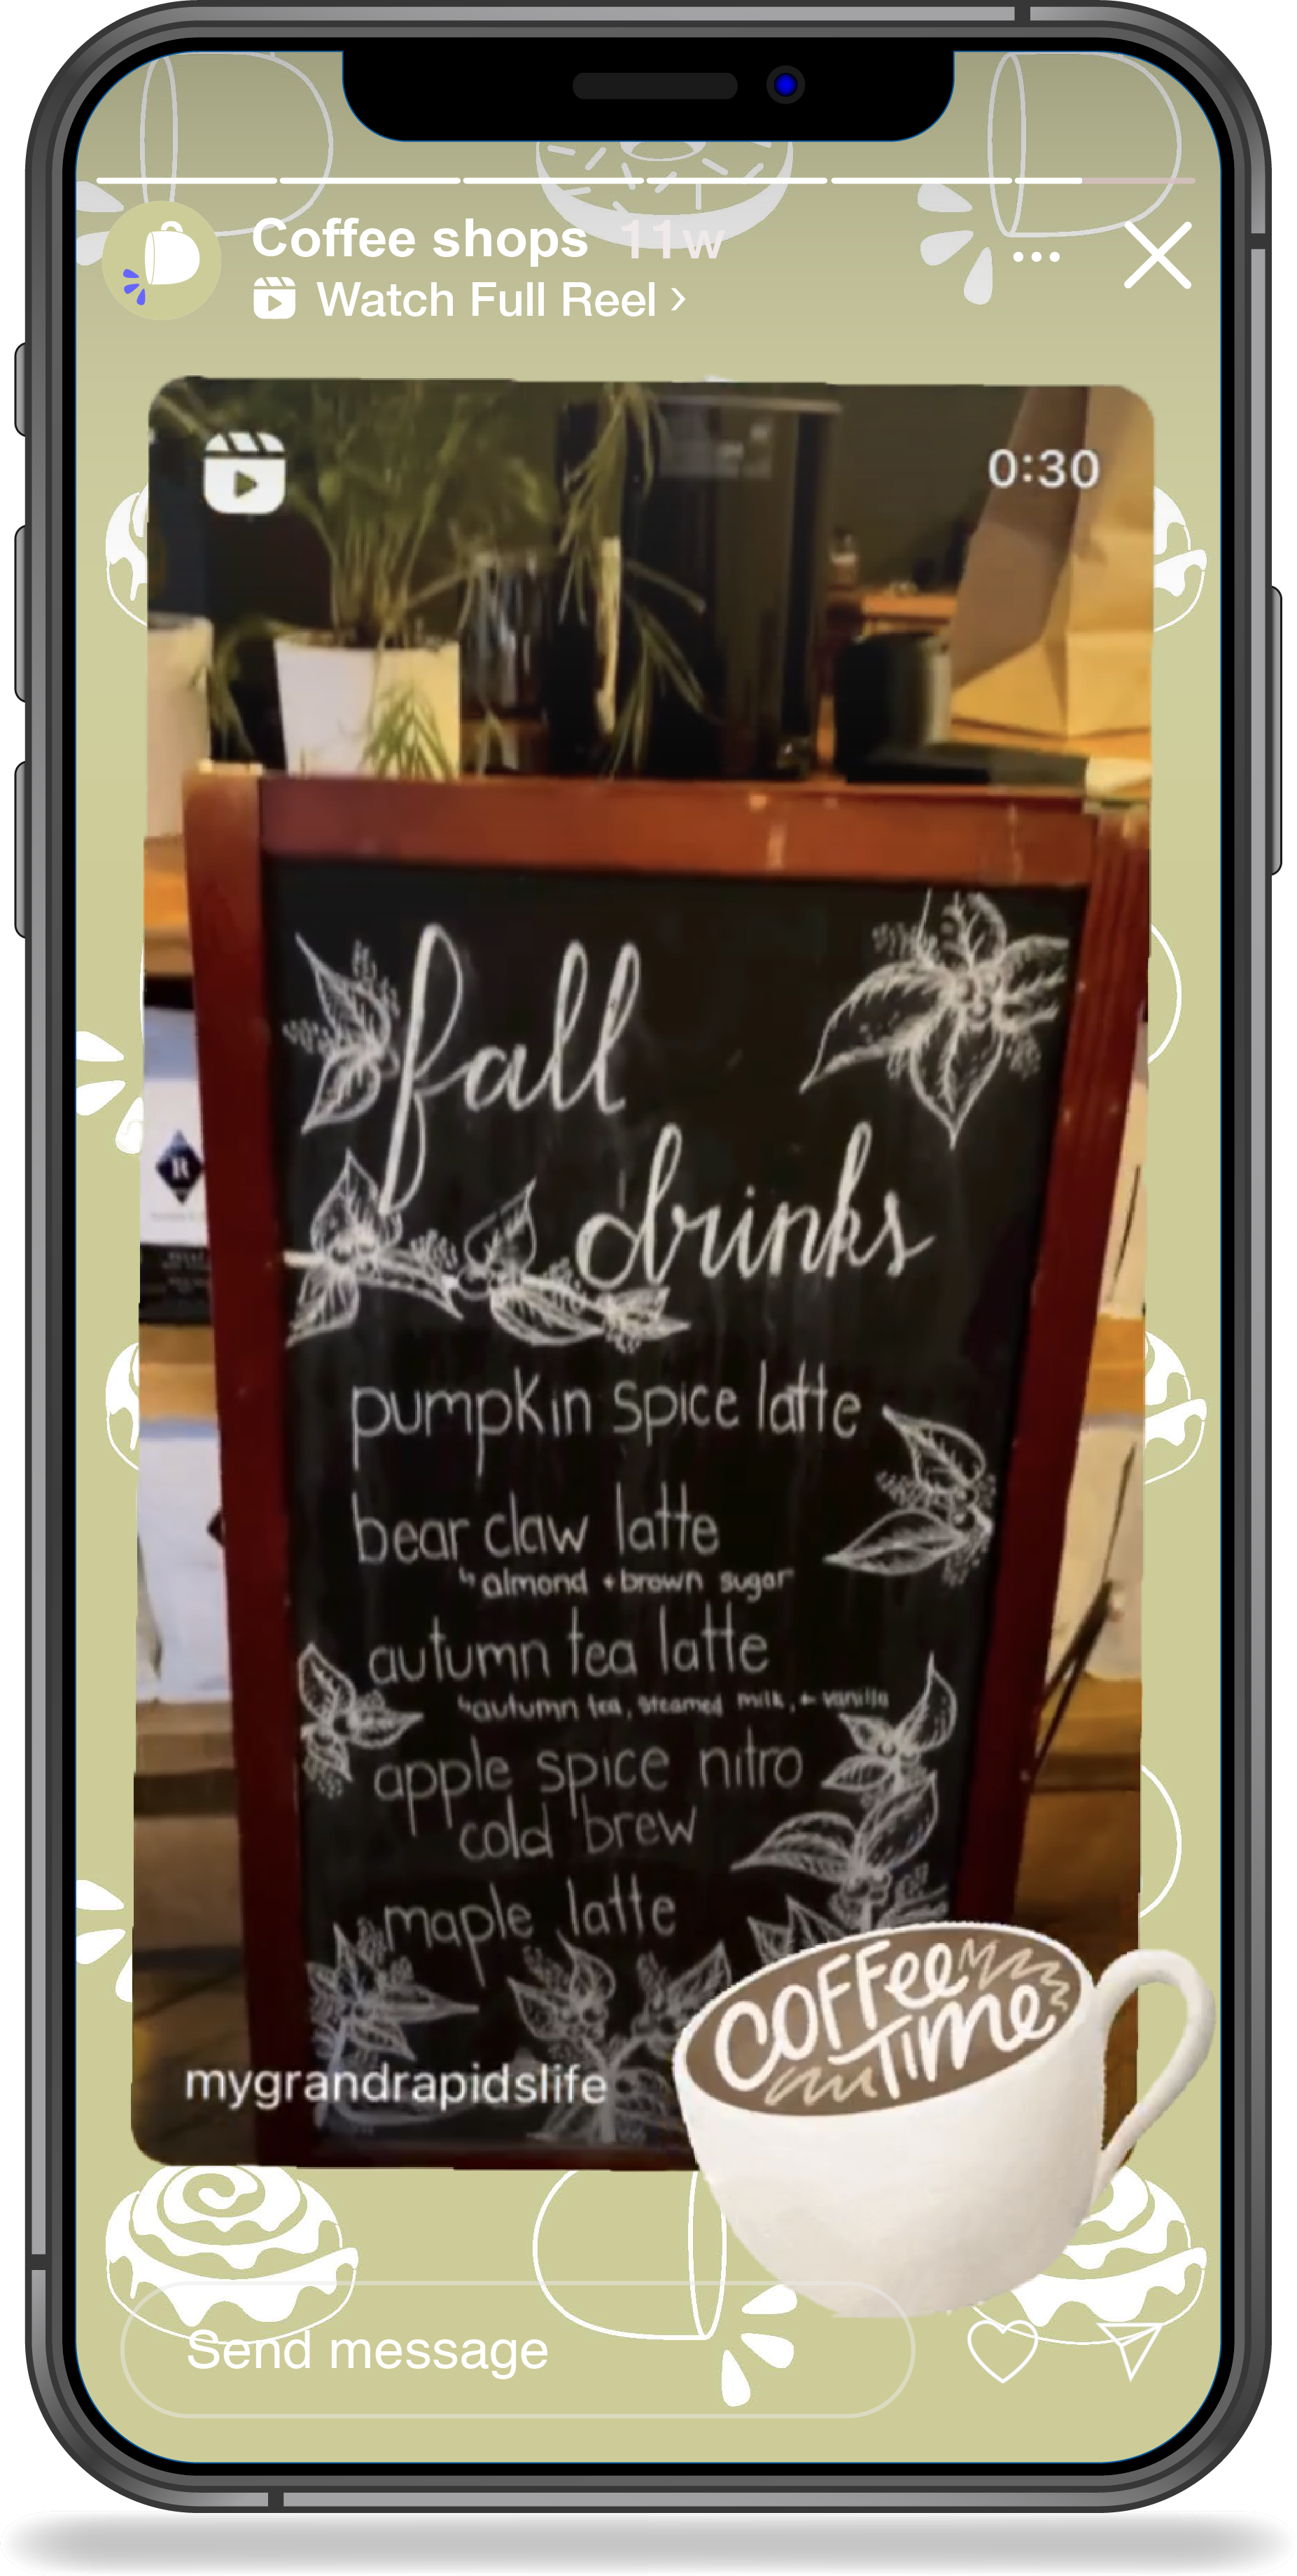 Coffee shops 11w
Watch Full Reel ›
0:30
R
fall
drinks
pumpkin spice latte
bear claw latte
↳ almond + brown sugar
autumn tea latte
↳ autumn tea, steamed milk, + vanilla
apple spice nitro
cold brew
maple latte
COFFee
TIMe
mygrandrapidslife
Send message